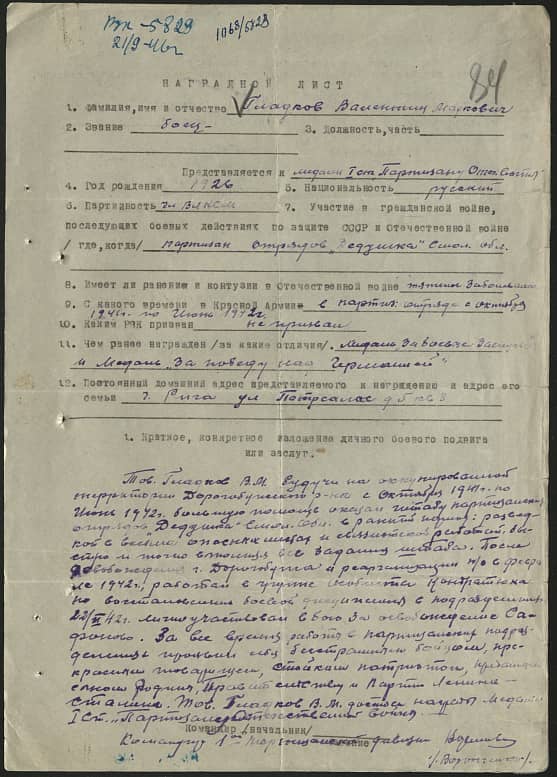 Вх-5829
21/9-46г
1068/5829
84
НАГРАДНОЙ ЛИСТ
1. Фамилия,имя и отчество Гладков Валентин Маркович
2. Звание боец 3. Должность,часть
Представляется к медали I ст. Партизану Отеч.
4. Год рождения 1926 5. Национальность русский
6. Партийность чл ВЛКСМ 7. Участие в гражданской войне,
последующих боевых действиях по защите СССР и Отечественной войне
/где,когда/ партизан отрядов "Дедушка" Смол. обл.
8. Имеет ли ранение и контузии в Отечественной войне
9. С какого времени в Красной Армии в партиз. отряде с октября
1941г. по Июнь 1942г.
10. Каким РВК призван не призван
11. Чем ранее награжден /за какие отличия/. Медаль За боевые Заслуги
и Медаль "За победу над Германией"
12. Постоянный домашний адрес представляемого к награждению и адрес его
семьи г. Рига ул д 5 кв 3
1. Краткое, конкретное изложение личного боевого подвига
или заслуг.
Тов. Гладков В.М. Будучи на оккупированной
территории Дорогобужского р-на с Октября 1941г. по
Июнь 1942г. большую помощь оказал штабу партизанских
отрядов Дедушка Смол. обл. в
в опасных местах и связистской работой, бы-
стро и точно выполняя все Задания штаба. После
освобождения г. Дорогобужа и реорганизации п/о в февра
ле 1942г. работал в группе
по восстановлению боевой дисциплины в подразделениях
22/II 42г. лично участвовал в бою За освобождение Са-
фоново. За все время работы в партизанских подраз-
делениях проявил себя бесстрашным бойцом, пре-
красным товарищем, стойким патриотом, преданным
своей Родине, Правительству и партии Ленина-
Сталина. Тов. Гладков В.М. достоин награды Медали
I Ст. "Партизану Отечественной Войны"
Командир /начальник/
Командир 1ой Партизанской дивизии